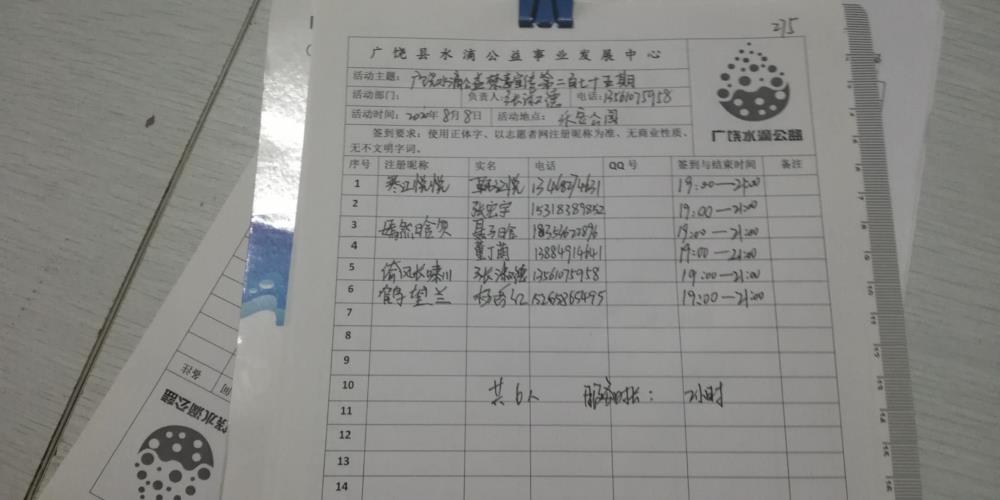 275
广饶县水滴公益事业发展中心
活动主题： 广饶水滴公益禁毒宣传第二百七十五期
活动部门： 负责人： 电话：13561075958
活动时间：2020年8月8日 活动地点：乐安公园
签到要求：使用正体字、以志愿者网注册昵称为准、无商业性质、
无不文明字词。
广饶水滴公益
序号 注册昵称 实名 电话 QQ 号 签到与结束时间 备注
1 寒江悦悦 19:00—21:00
2 张宏宇 15318389852 19:00—21:00
3 嫣然 19:00—21:00
4 董丁菌 13884914641 19:00—21:00
5 13561075958 19:00—21:00
6 鹤望兰 15265865495 19:00—21:00
7
8
9
10 共6人 服务时长： 2小时
11
12
13
14
备注
饶水滴公益